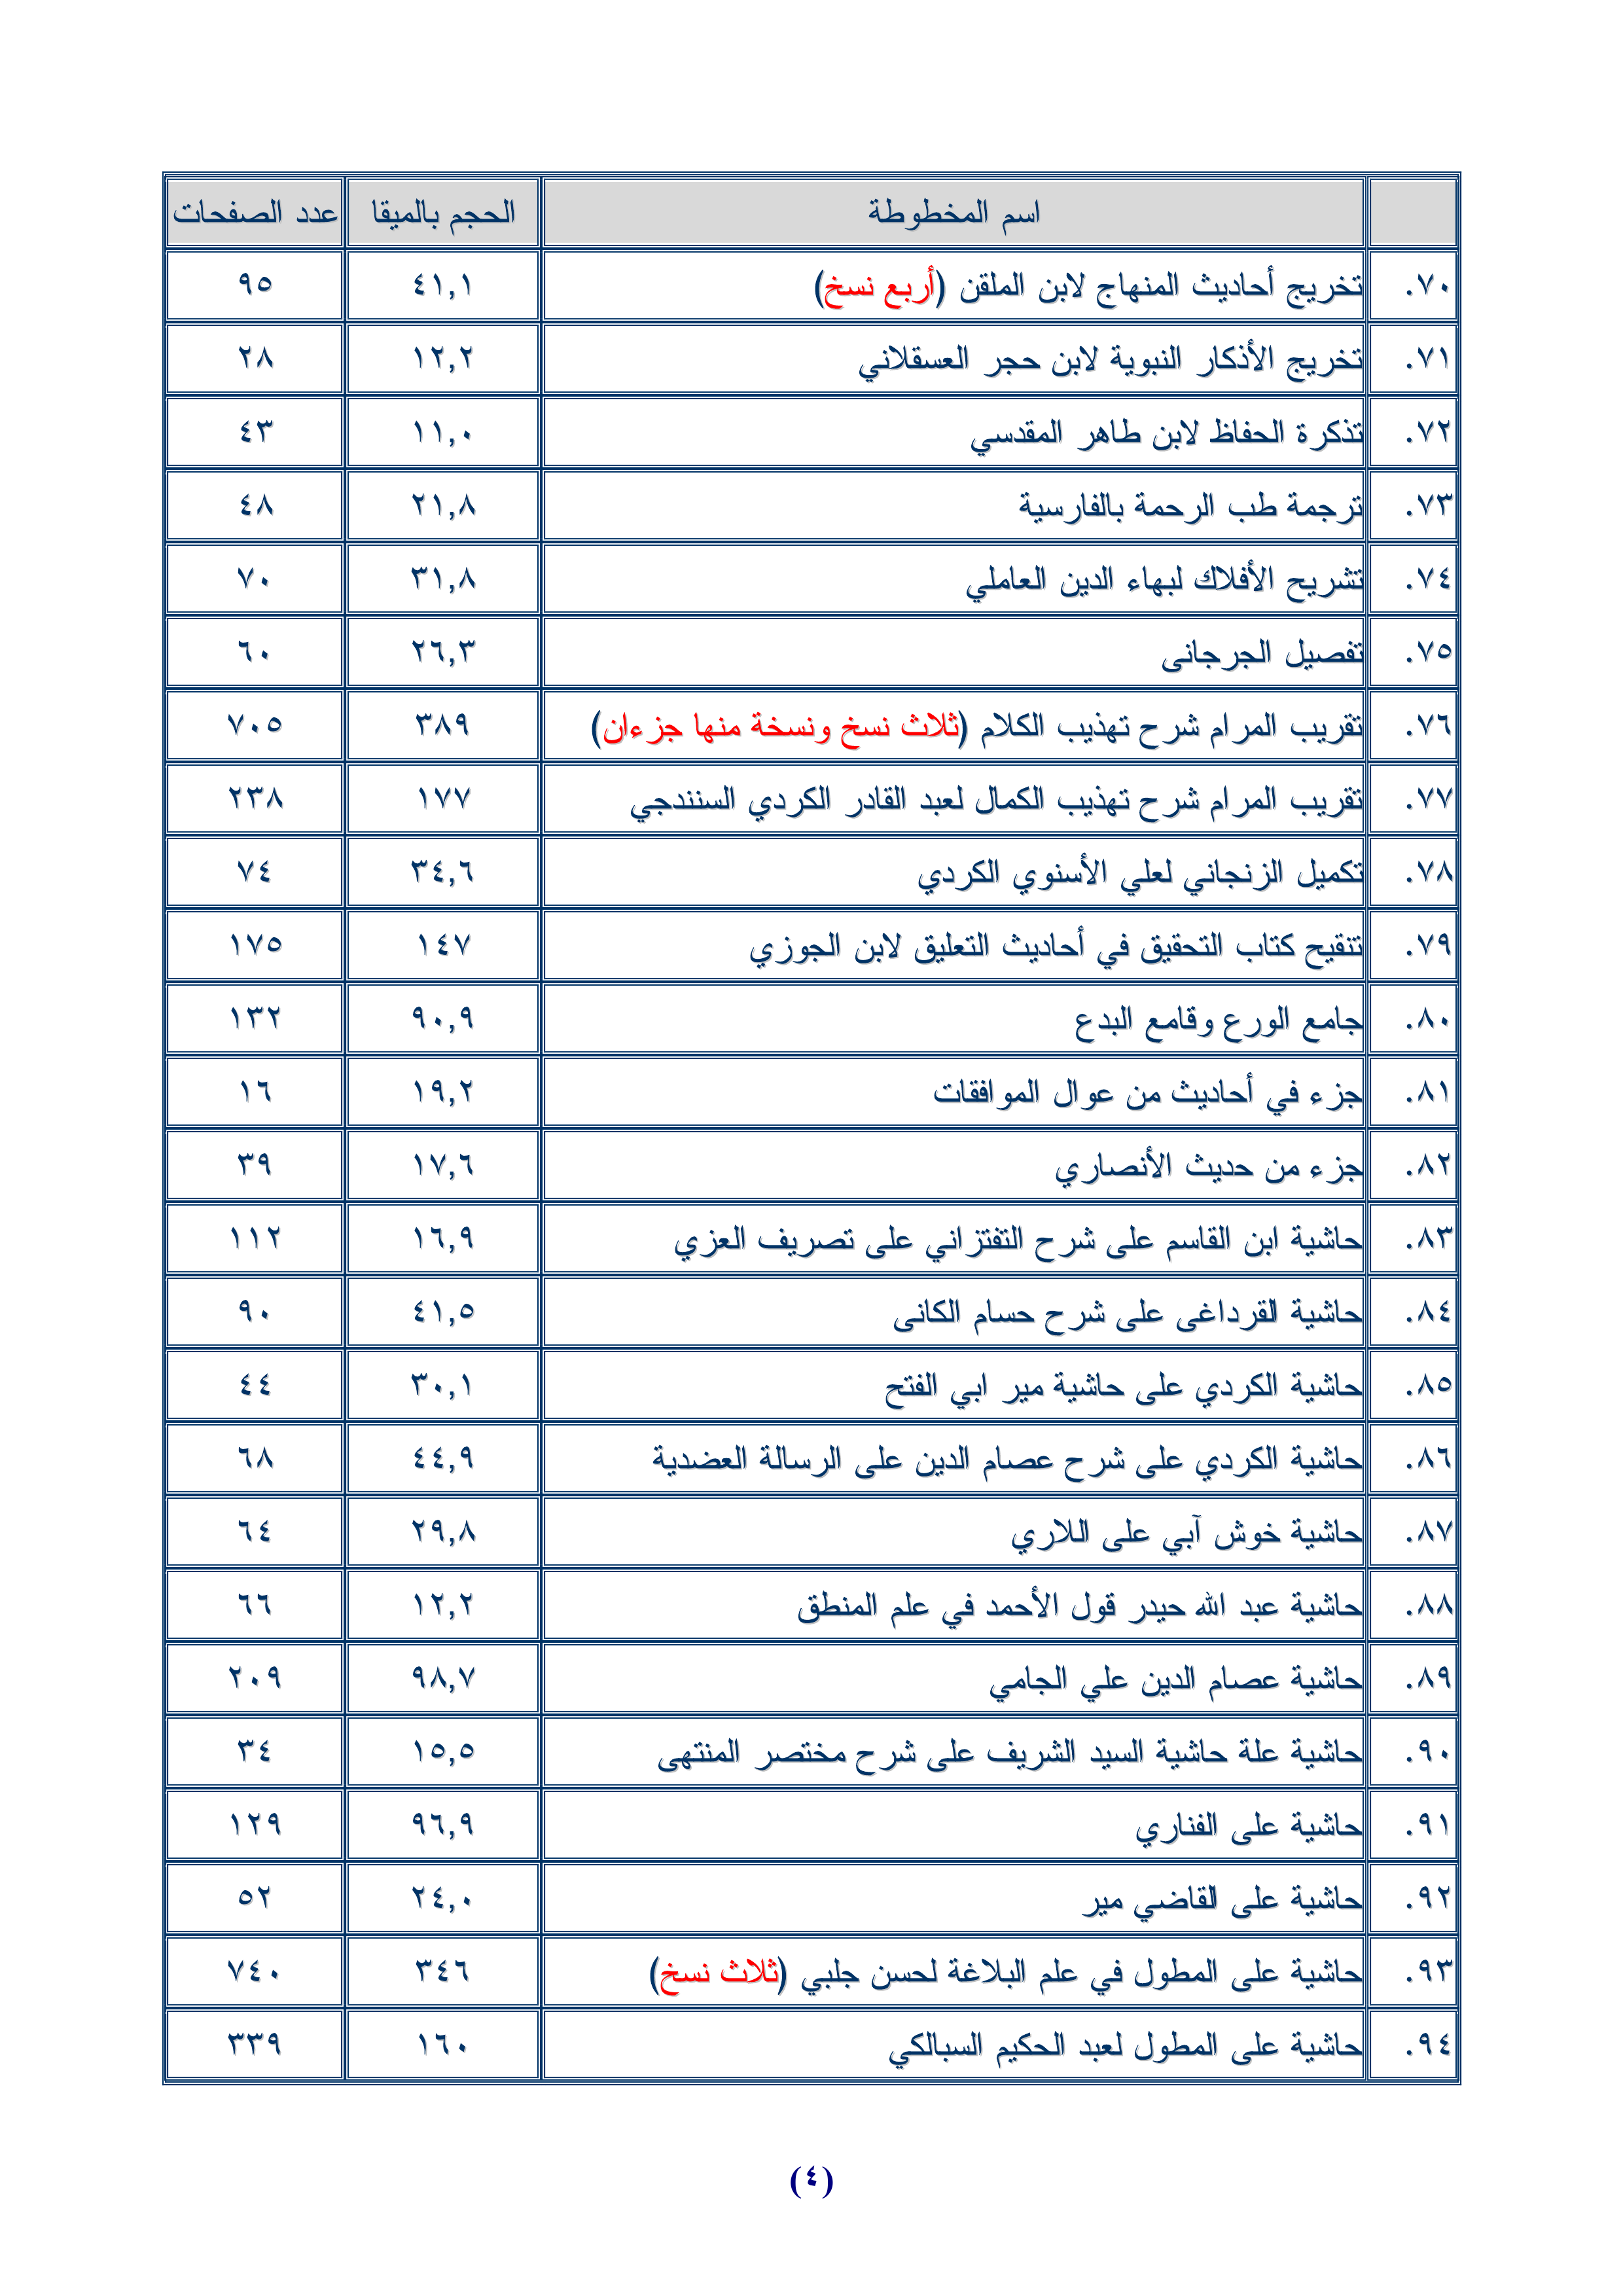 اسم المخطوطة الحجم بالميقا عدد الصفحات
٧٠. تخريج أحاديث المنهاج لابن الملقن (أربع نسخ) ٤١,١ ٩٥
٧١. تخريج الأذكار النبوية لابن حجر العسقلاني ١٢,٢ ٢٨
٧٢. تذكرة الحفاظ لابن طاهر المقدسي ١١,٠ ٤٣
٧٣. ترجمة طب الرحمة بالفارسية ٢١,٨ ٤٨
٧٤. تشريح الأفلاك لبهاء الدين العاملي ٣١,٨ ٧٠
٧٥. تفصيل الجرجانى ٢٦,٣ ٦٠
٧٦. تقريب المرام شرح تهذيب الكلام (ثلاث نسخ ونسخة منها جزءان) ٣٨٩ ٧٠٥
٧٧. تقريب المرام شرح تهذيب الكمال لعبد القادر الكردي السنندجي ١٧٧ ٢٣٨
٧٨. تكميل الزنجاني لعلي الأسنوي الكردي ٣٤,٦ ٧٤
٧٩. تنقيح كتاب التحقيق في أحاديث التعليق لابن الجوزي ١٤٧ ١٧٥
٨٠. جامع الورع وقامع البدع ٩٠,٩ ١٣٢
٨١. جزء في أحاديث من عوال الموافقات ١٩,٢ ١٦
٨٢. جزء من حديث الأنصاري ١٧,٦ ٣٩
٨٣. حاشية ابن القاسم على شرح التفتزاني على تصريف العزي ١٦,٩ ١١٢
٨٤. حاشية القرداغى على شرح حسام الكانى ٤١,٥ ٩٠
٨٥. حاشية الكردي على حاشية مير ابي الفتح ٣٠,١ ٤٤
٨٦. حاشية الكردي على شرح عصام الدين على الرسالة العضدية ٤٤,٩ ٦٨
٨٧. حاشية خوش آبي على اللاري ٢٩,٨ ٦٤
٨٨. حاشية عبد الله حيدر قول الأحمد في علم المنطق ١٢,٢ ٦٦
٨٩. حاشية عصام الدين علي الجامي ٩٨,٧ ٢٠٩
٩٠. حاشية علة حاشية السيد الشريف على شرح مختصر المنتهى ١٥,٥ ٣٤
٩١. حاشية على الفناري ٩٦,٩ ١٢٩
٩٢. حاشية على القاضي مير ٢٤,٠ ٥٢
٩٣. حاشية على المطول في علم البلاغة لحسن جلبي (ثلاث نسخ) ٣٤٦ ٧٤٠
٩٤. حاشية على المطول لعبد الحكيم السبالكي ١٦٠ ٣٣٩
(٤)